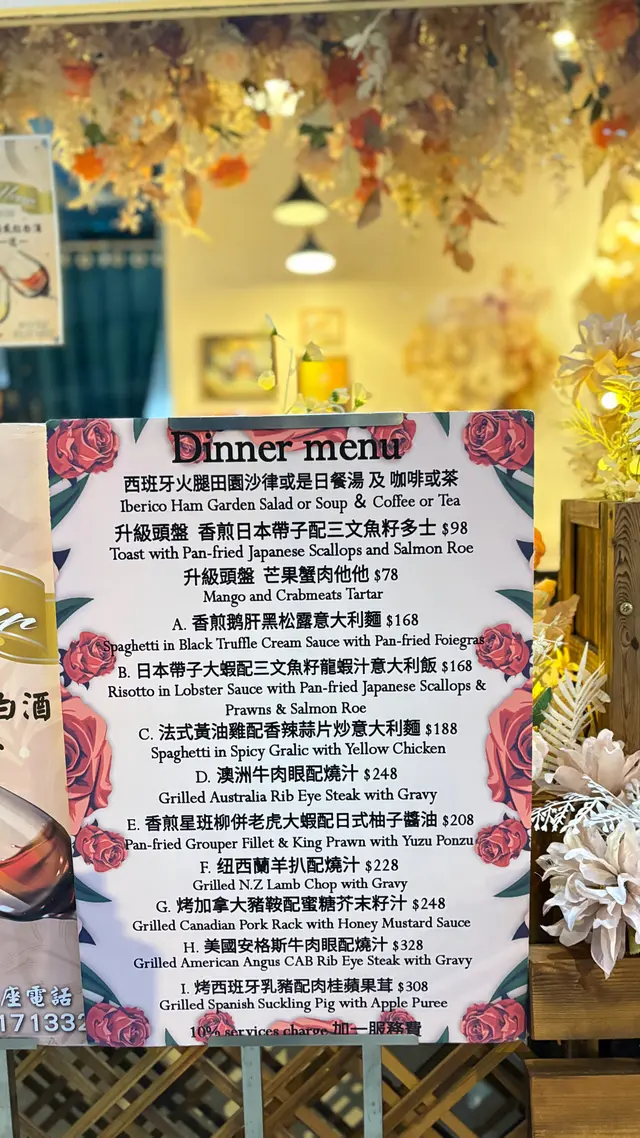 Dinner menu
西班牙火腿田園沙律或是日餐湯 及 咖啡或茶
Iberico Ham Garden Salad or Soup & Coffee or Tea
升級頭盤 香煎日本帶子配三文魚籽多士 $98
Toast with Pan-fried Japanese Scallops and Salmon Roe
升級頭盤 芒果蟹肉他他 $78
Mango and Crabmeats Tartar
A. 香煎鹅肝黑松露意大利麵 $168
Spaghetti in Black Truffle Cream Sauce with Pan-fried Foiegras
B. 日本帶子大蝦配三文魚籽龍蝦汁意大利飯 $168
Risotto in Lobster Sauce with Pan-fried Japanese Scallops &
Prawns & Salmon Roe
C. 法式黃油雞配香辣蒜片炒意大利麵 $188
Spaghetti in Spicy Gralic with Yellow Chicken
D. 澳洲牛肉眼配燒汁 $248
Grilled Australia Rib Eye Steak with Gravy
E. 香煎星班柳併老虎大蝦配日式柚子醬油 $208
Pan-fried Grouper Fillet & King Prawn with Yuzu Ponzu
F. 纽西蘭羊扒配燒汁 $228
Grilled N.Z Lamb Chop with Gravy
G. 烤加拿大豬鞍配蜜糖芥末籽汁 $248
Grilled Canadian Pork Rack with Honey Mustard Sauce
H. 美國安格斯牛肉眼配燒汁 $328
Grilled American Angus CAB Rib Eye Steak with Gravy
I. 烤西班牙乳豬配肉桂蘋果茸 $308
Grilled Spanish Suckling Pig with Apple Puree
10% services charge 加一服務費
白酒
座電話
171332